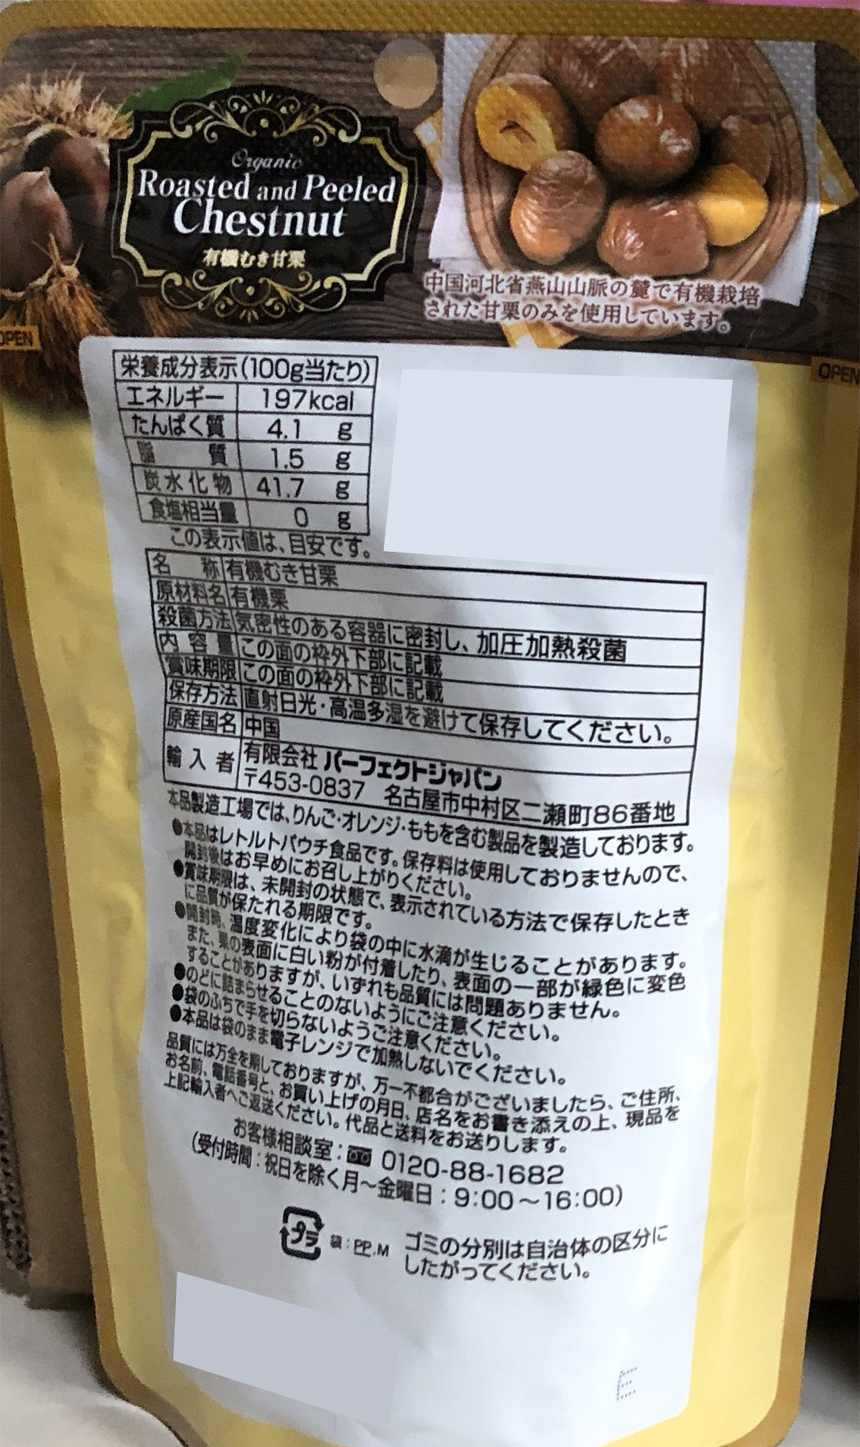 Organic
Roasted and Peeled
Chestnut
有機むき甘栗
中国河北省燕山山脈の麓で有機栽培
された甘栗のみを使用しています。
OPEN
OPEN
栄養成分表示(100g当たり)
エネルギー 197kcal
たんぱく質 4.1 g
脂質 1.5 g
炭水化物 41.7 g
食塩相当量 0 g
この表示値は、目安です。
名称 有機むき甘栗
原材料名 有機栗
殺菌方法 気密性のある容器に密封し、加圧加熱殺菌
内容量 この面の枠外下部に記載
賞味期限 この面の枠外下部に記載
保存方法 直射日光・高温多湿を避けて保存してください。
原産国名 中国
輸入者 有限会社 パーフェクトジャパン
〒453-0837 名古屋市中村区二瀬町86番地
本品製造工場では、りんご・オレンジ・ももを含む製品を製造しております。
●本品はレトルトパウチ食品です。保存料は使用しておりませんので、
開封後はお早めにお召し上がりください。
●賞味期限は、未開封の状態で、表示されている方法で保存したとき
に品質が保たれる期限です。
●開封時、温度変化により袋の中に水滴が生じることがあります。
また、栗の表面に白い粉が付着したり、表面の一部が緑色に変色
することがありますが、いずれも品質には問題ありません。
●のどに詰まらせることのないようにご注意ください。
●袋のふちで手を切らないようご注意ください。
●本品は袋のまま電子レンジで加熱しないでください。
品質には万全を期しておりますが、万一不都合がございましたら、ご住所、
お名前、電話番号と、お買い上げの月日、店名をお書き添えの上、現品を
上記輸入者へご返送ください。代品と送料をお送りします。
お客様相談室：0120-88-1682
(受付時間：祝日を除く月～金曜日：9:00～16:00)
プラ 袋：PP,M ゴミの分別は自治体の区分に
したがってください。
E